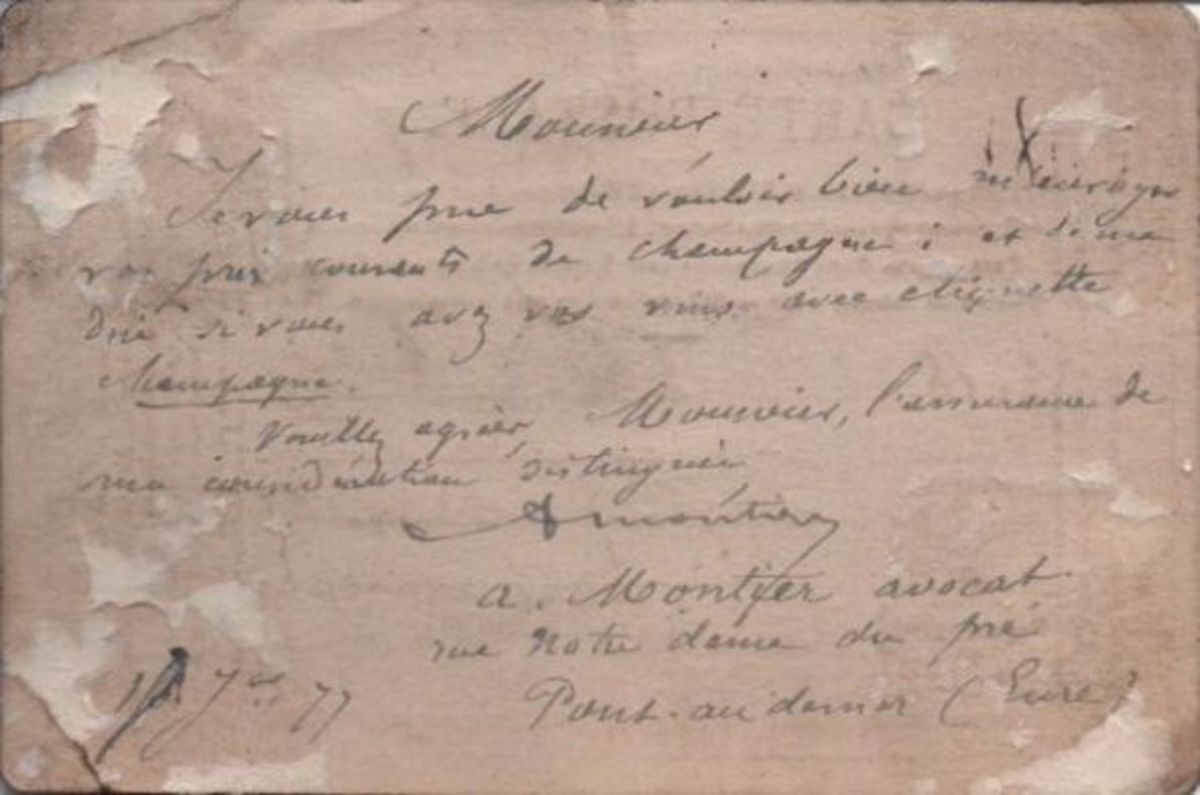 Monsieur
Je vous prie de vouloir bien m'envoyer
vos prix courants de champagne ; et de me
dire si vous avez vos vins avec etiquette
champagne.
Veuillez agréer, Monsieur, l'assurance de
ma considération distinguée
AMontier
a. Montier avocat
rue Notre dame du pré
Pont-audemer (Eure)
7bre 77